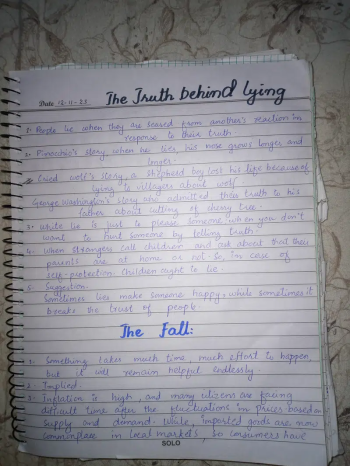 Date 12-11-23 The Truth behind lying
1- People lie when they are scared from another's reaction in
response to their truth.
2- Pinocchio's story, when he lies, his nose grows longer and
longer.
Cried wolf's story, a shepherd boy lost his life because of
lying to villagers about wolf
George Washington's story are admitted their truth to his
father about cutting of cherry tree.
3- White lie is just to please someone when you don't
want to hurt someone by telling truth.
4- When strangers call children and ask about that their
parents are at home or not. So, In case of
self-protection children ought to lie.
5- Suggestion.
Sometimes lies make someone happy, while sometimes it
breaks the trust of people.
The Fall:
1- Something takes much time, much effort to happen,
but it will remain helpful endlessly.
2- Implied.
3- Inflation is high, and many citizens are facing
difficult time after the fluctuations in prices based on
supply and demand. While, imported goods are now
commonplace in local markets, so consumers have
SOLO